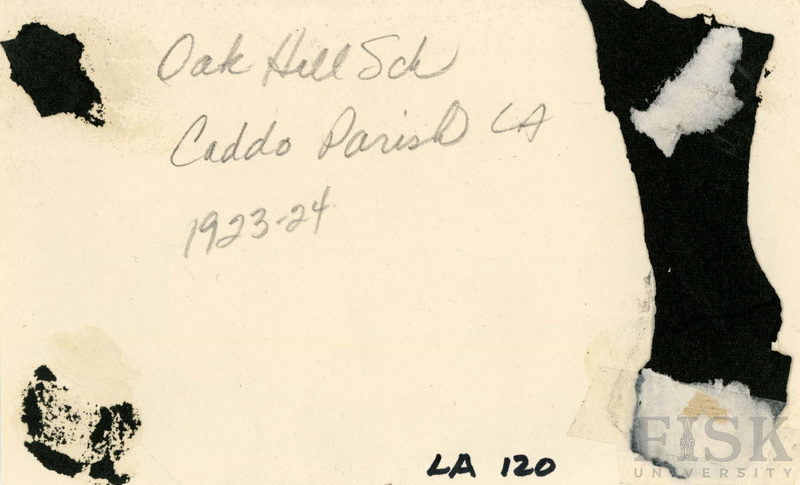 Oak Hill Sch
Caddo Parish LA
1923-24
LA 120
FISK
UNIVERSITY